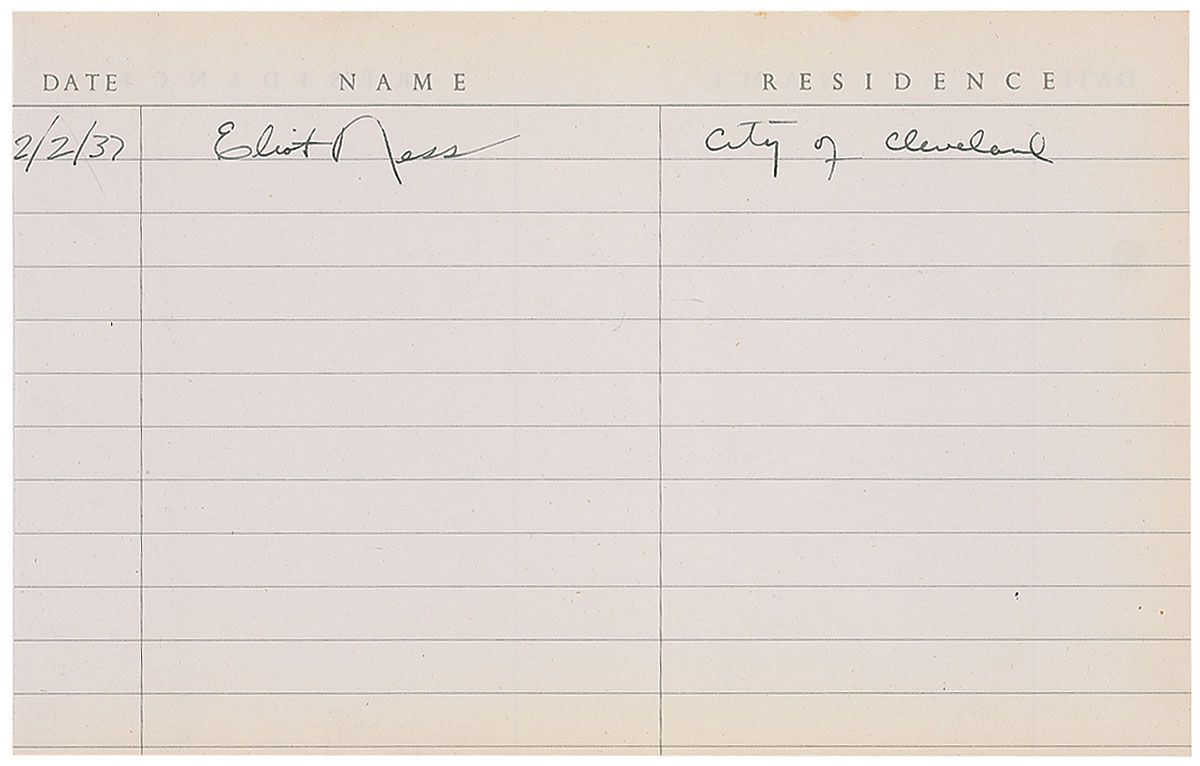 DATE NAME RESIDENCE
2/2/37 Eliot Ness City of Cleveland